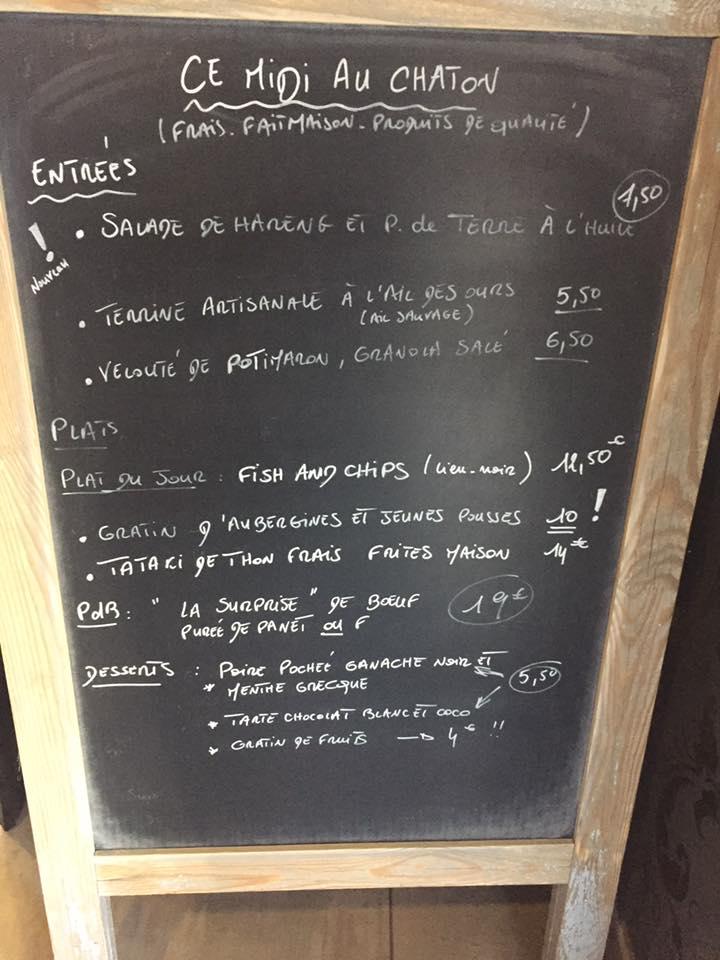 CE MIDI AU CHATON
(FRAIS. FAIT MAISON. PRODUITS DE QUALITÉ)
ENTRÉES
7,50
• SALADE DE HARENG ET P. de TERRE À L'HUILE
! Nouveau
• TERRINE ARTISANALE À L'AIL DES OURS 5,50
(AIL SAUVAGE)
• VELOUTÉ DE POTIMARON, GRANOLA SALÉ 6,50
PLATS
PLAT DU JOUR : FISH AND CHIPS (Lieu-noir) 12,50€
• GRATIN D'AUBERGINES ET JEUNES POUSSES 10 !
• TATAKI DE THON FRAIS FRITES MAISON 14€
PdB : "LA SURPRISE" DE BOEUF 19€
PURÉE DE PANET OU F
DESSERTS : POIRE POCHEÉ GANACHE NOIR ET
* MENTHE GRECQUE 5,50
* TARTE CHOCOLAT BLANC ET COCO
* GRATIN DE FRUITS → 4€ !!